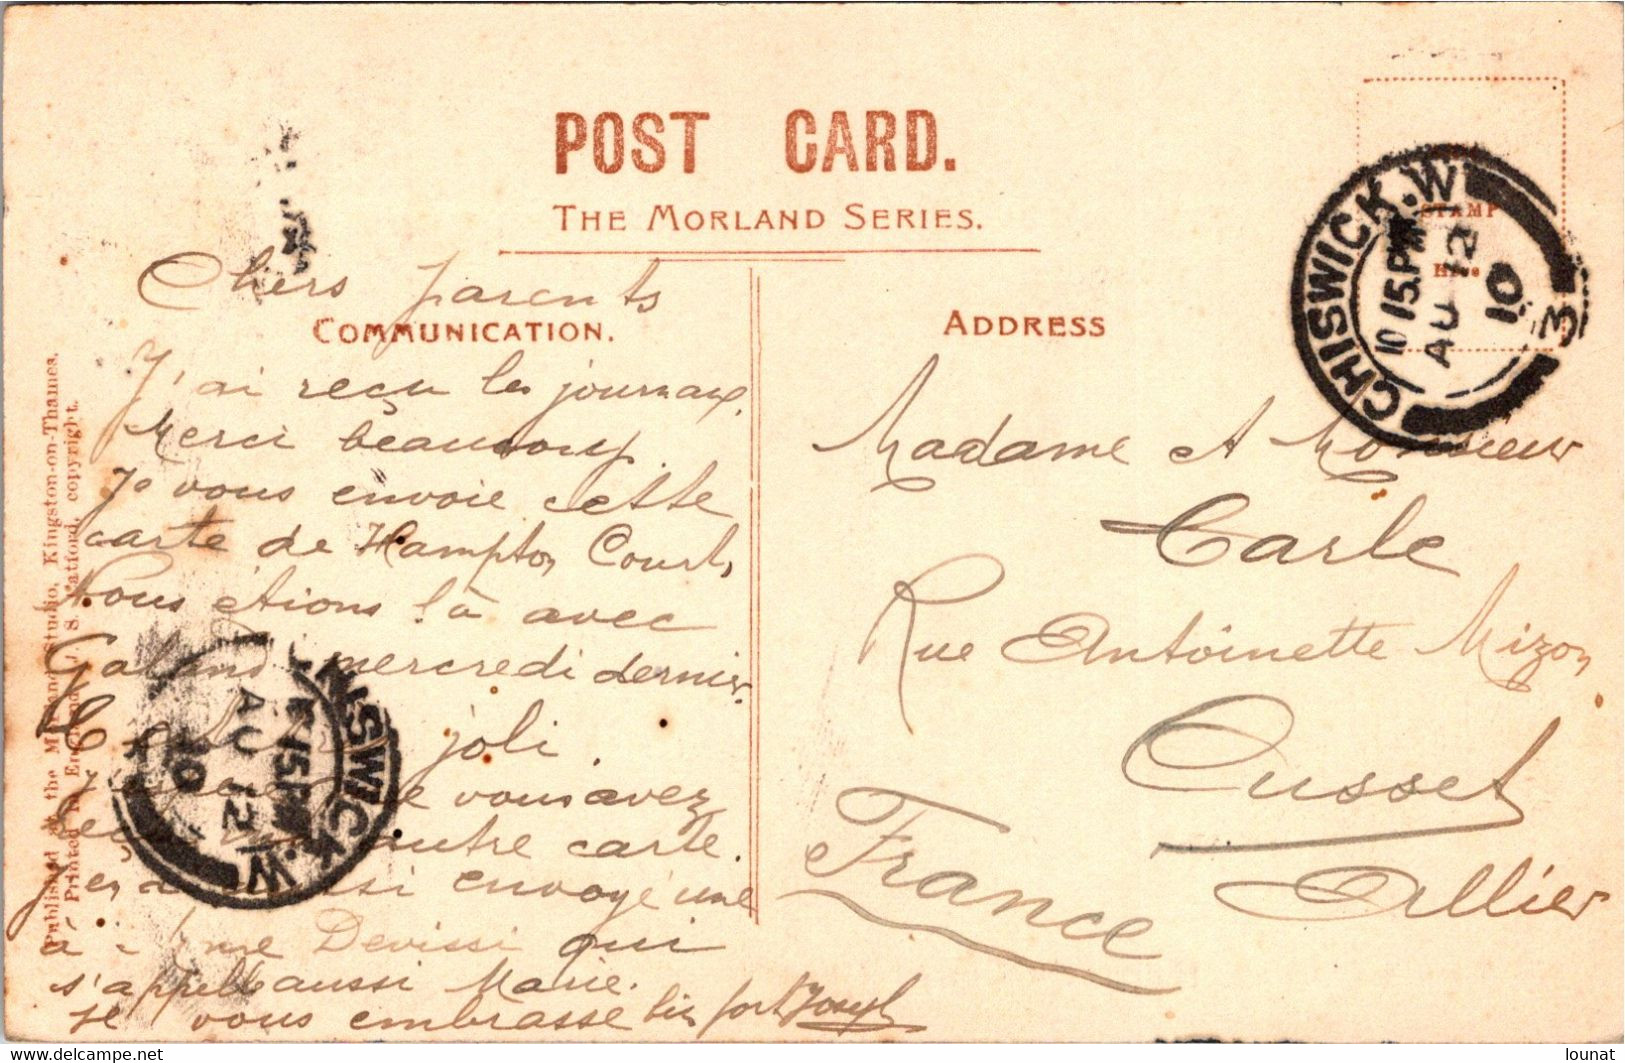 POST CARD.
THE MORLAND SERIES.
COMMUNICATION.
ADDRESS
STAMP
CHISWICK.W
10 15.PM
AU 12
10
3
Chers parents
J'ai reçu les journaux.
Merci beaucoup.
Je vous envoie cette
carte de Hampton Court,
Nous étions là avec
Galand mercredi dernier
C joli.
vous avez
autre carte.
envoyé une
à Devissi qui
s'appelle aussi Marie.
Je vous embrasse bien fort Joseph
Madame et Monsieur
Carle
Rue Antoinette Mizon
Cusset
Allier
France
CHISWICK.W
15.PM
AU 12
10
Published at the Morland Studio, Kingston-on-Thames.
Printed in England. S. Catford, copyright.
www.delcampe.net
lounat